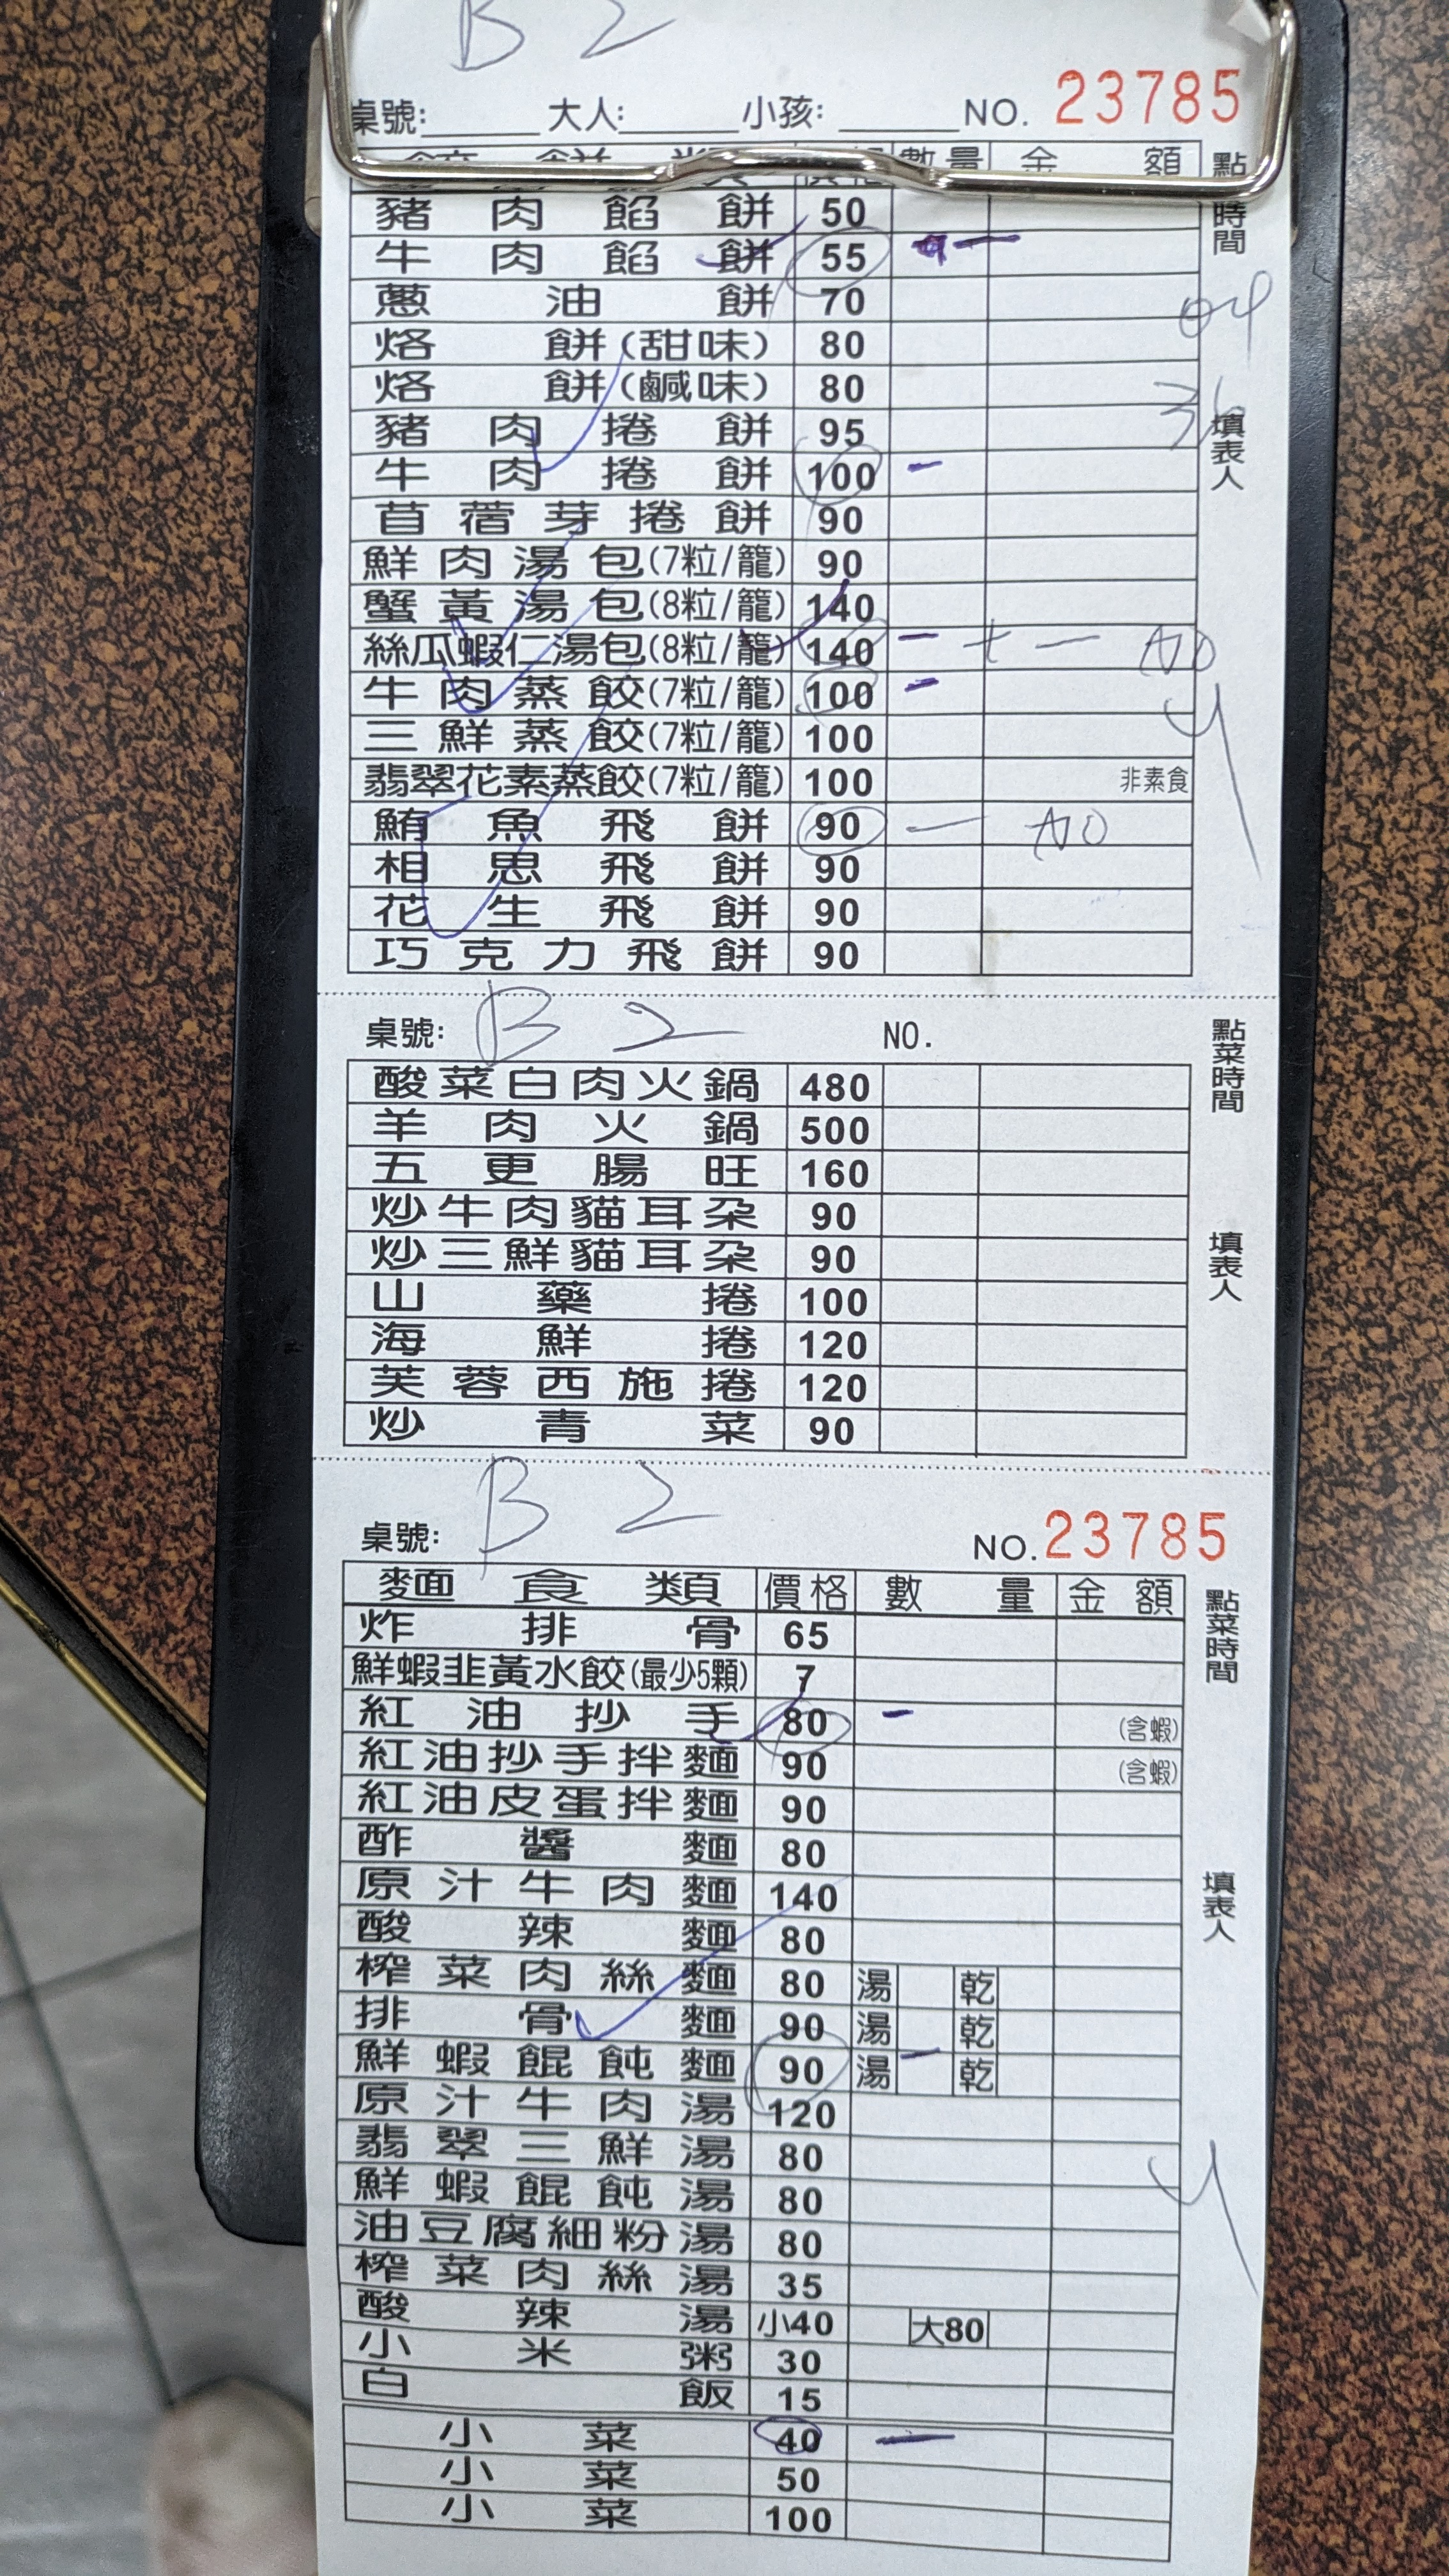 B 2
桌號: 大人: 小孩: NO. 23785
數量 金額 點
時間
豬肉餡餅 50
牛肉餡餅 55 一
蔥油餅 70
04
烙餅(甜味) 80
烙餅(鹹味) 80
36
豬肉捲餅 95
填表人
牛肉捲餅 100 一
苜蓿芽捲餅 90
鮮肉湯包(7粒/籠) 90
蟹黃湯包(8粒/籠) 140
絲瓜蝦仁湯包(8粒/籠) 140 一 + 一 NO
牛肉蒸餃(7粒/籠) 100 一
三鮮蒸餃(7粒/籠) 100
翡翠花素蒸餃(7粒/籠) 100 非素食
鮪魚飛餅 90 一 NO
相思飛餅 90
花生飛餅 90
巧克力飛餅 90
桌號: B 2 NO.
點菜時間
酸菜白肉火鍋 480
羊肉火鍋 500
五更腸旺 160
炒牛肉貓耳朵 90
填表人
炒三鮮貓耳朵 90
山藥捲 100
海鮮捲 120
芙蓉西施捲 120
炒青菜 90
桌號: B 2 NO. 23785
麵食類 價格 數量 金額
點菜時間
炸排骨 65
鮮蝦韭黃水餃(最少5顆) 7
紅油抄手 80 一 (含蝦)
紅油抄手拌麵 90 (含蝦)
紅油皮蛋拌麵 90
酢醬麵 80
原汁牛肉麵 140
填表人
酸辣麵 80
榨菜肉絲麵 80 湯 乾
排骨麵 90 湯 乾
鮮蝦餛飩麵 90 湯 一 乾
原汁牛肉湯 120
翡翠三鮮湯 80
鮮蝦餛飩湯 80
油豆腐細粉湯 80
榨菜肉絲湯 35
酸辣湯 小40 大80
小米粥 30
白飯 15
小菜 40 一
小菜 50
小菜 100